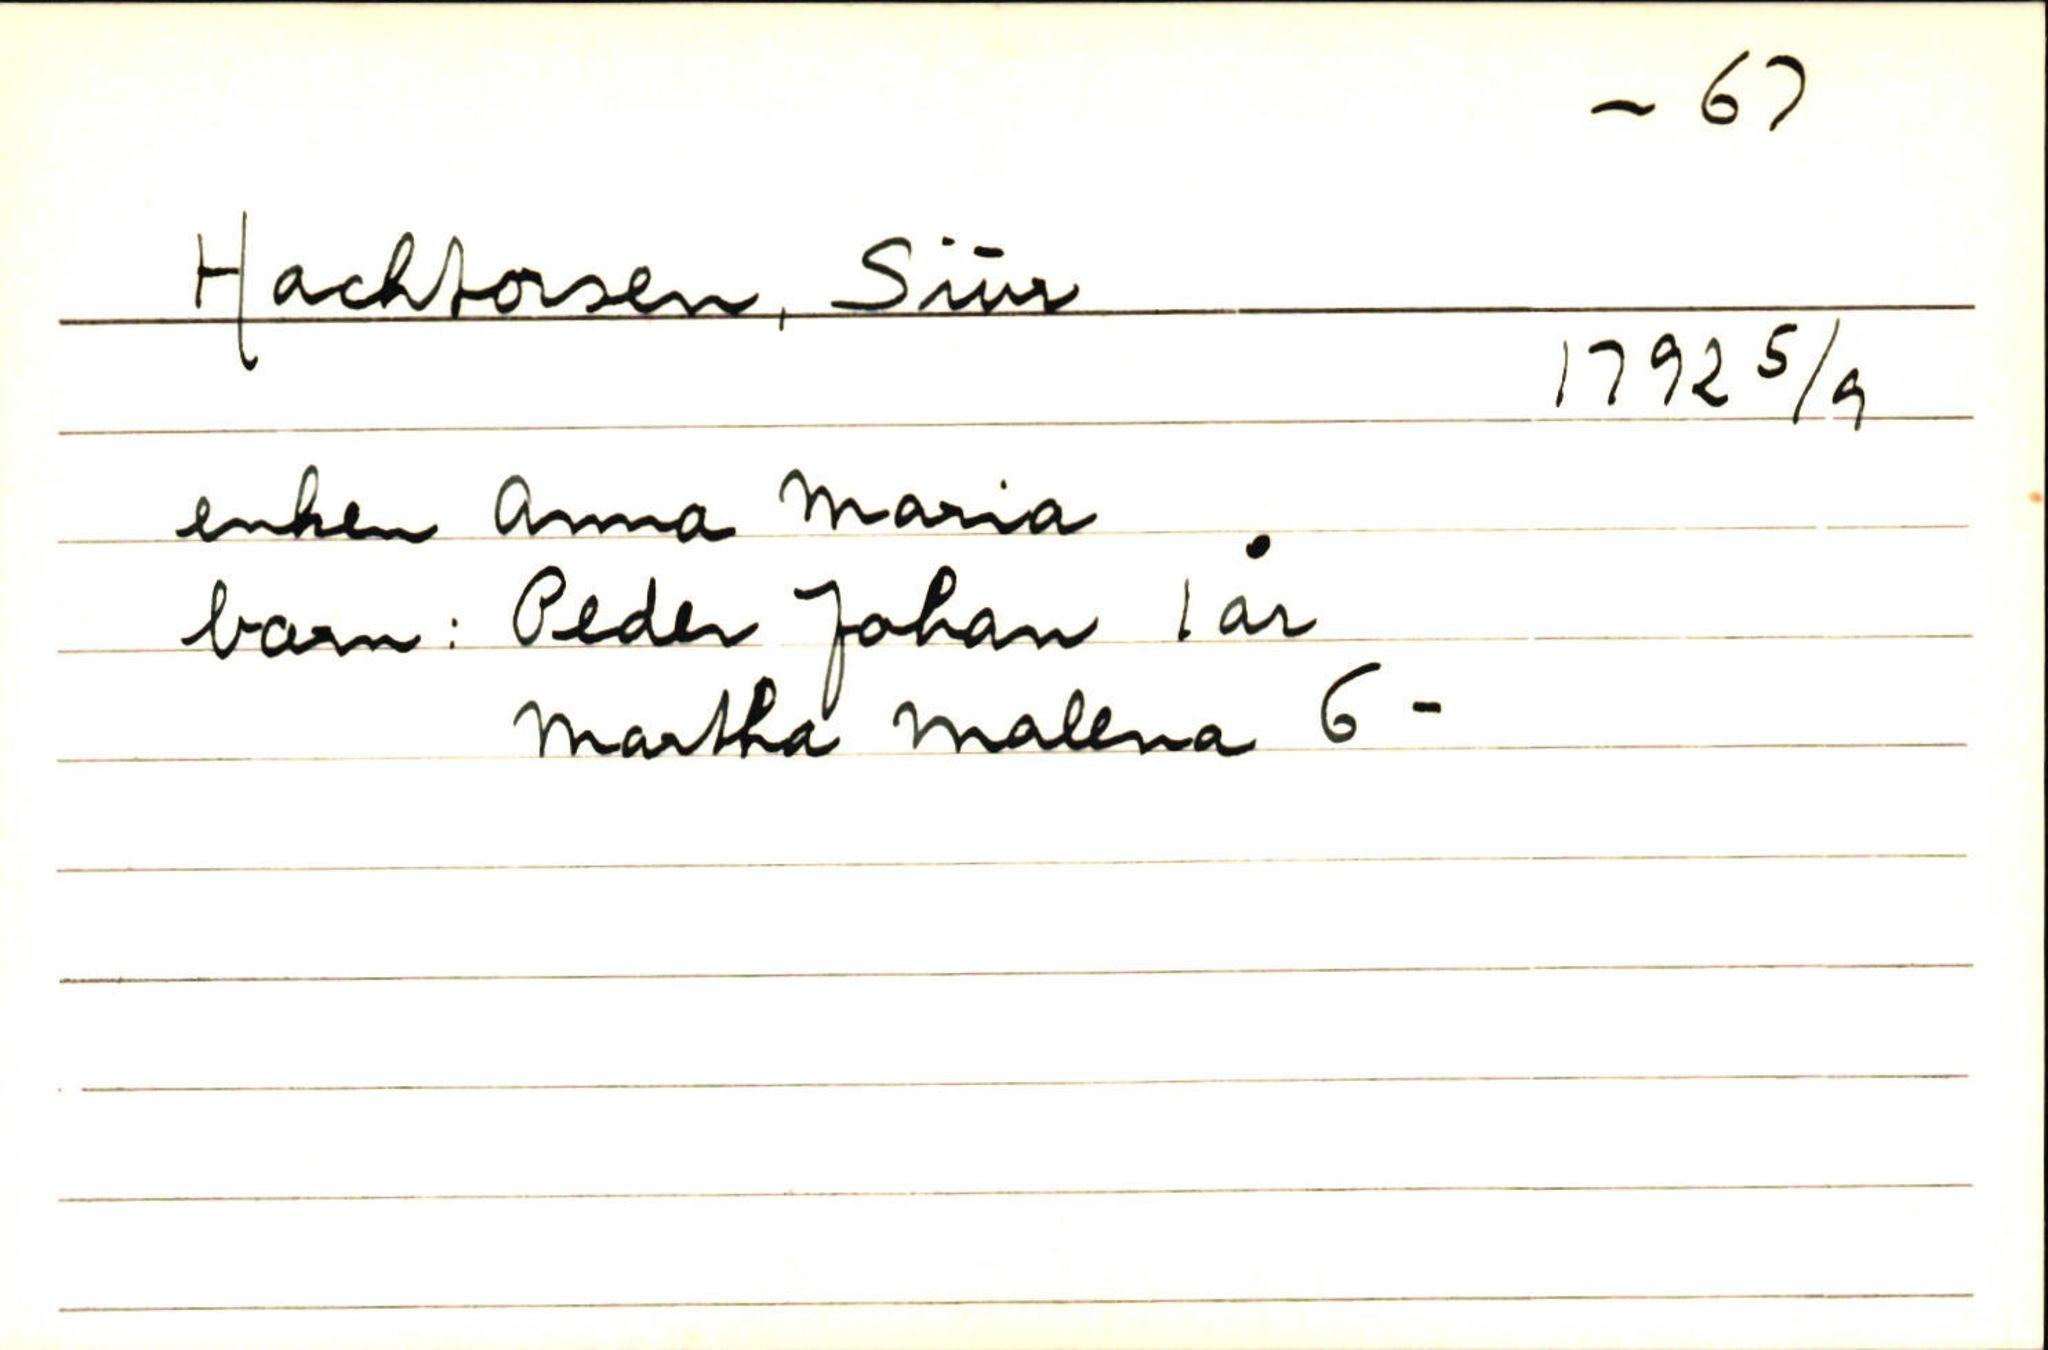 ~ 67
Hachtorsen, Siūr
1792 5/9
enken Anna Maria
barn: Peder Johan 1 år
Martha Malena 6 -